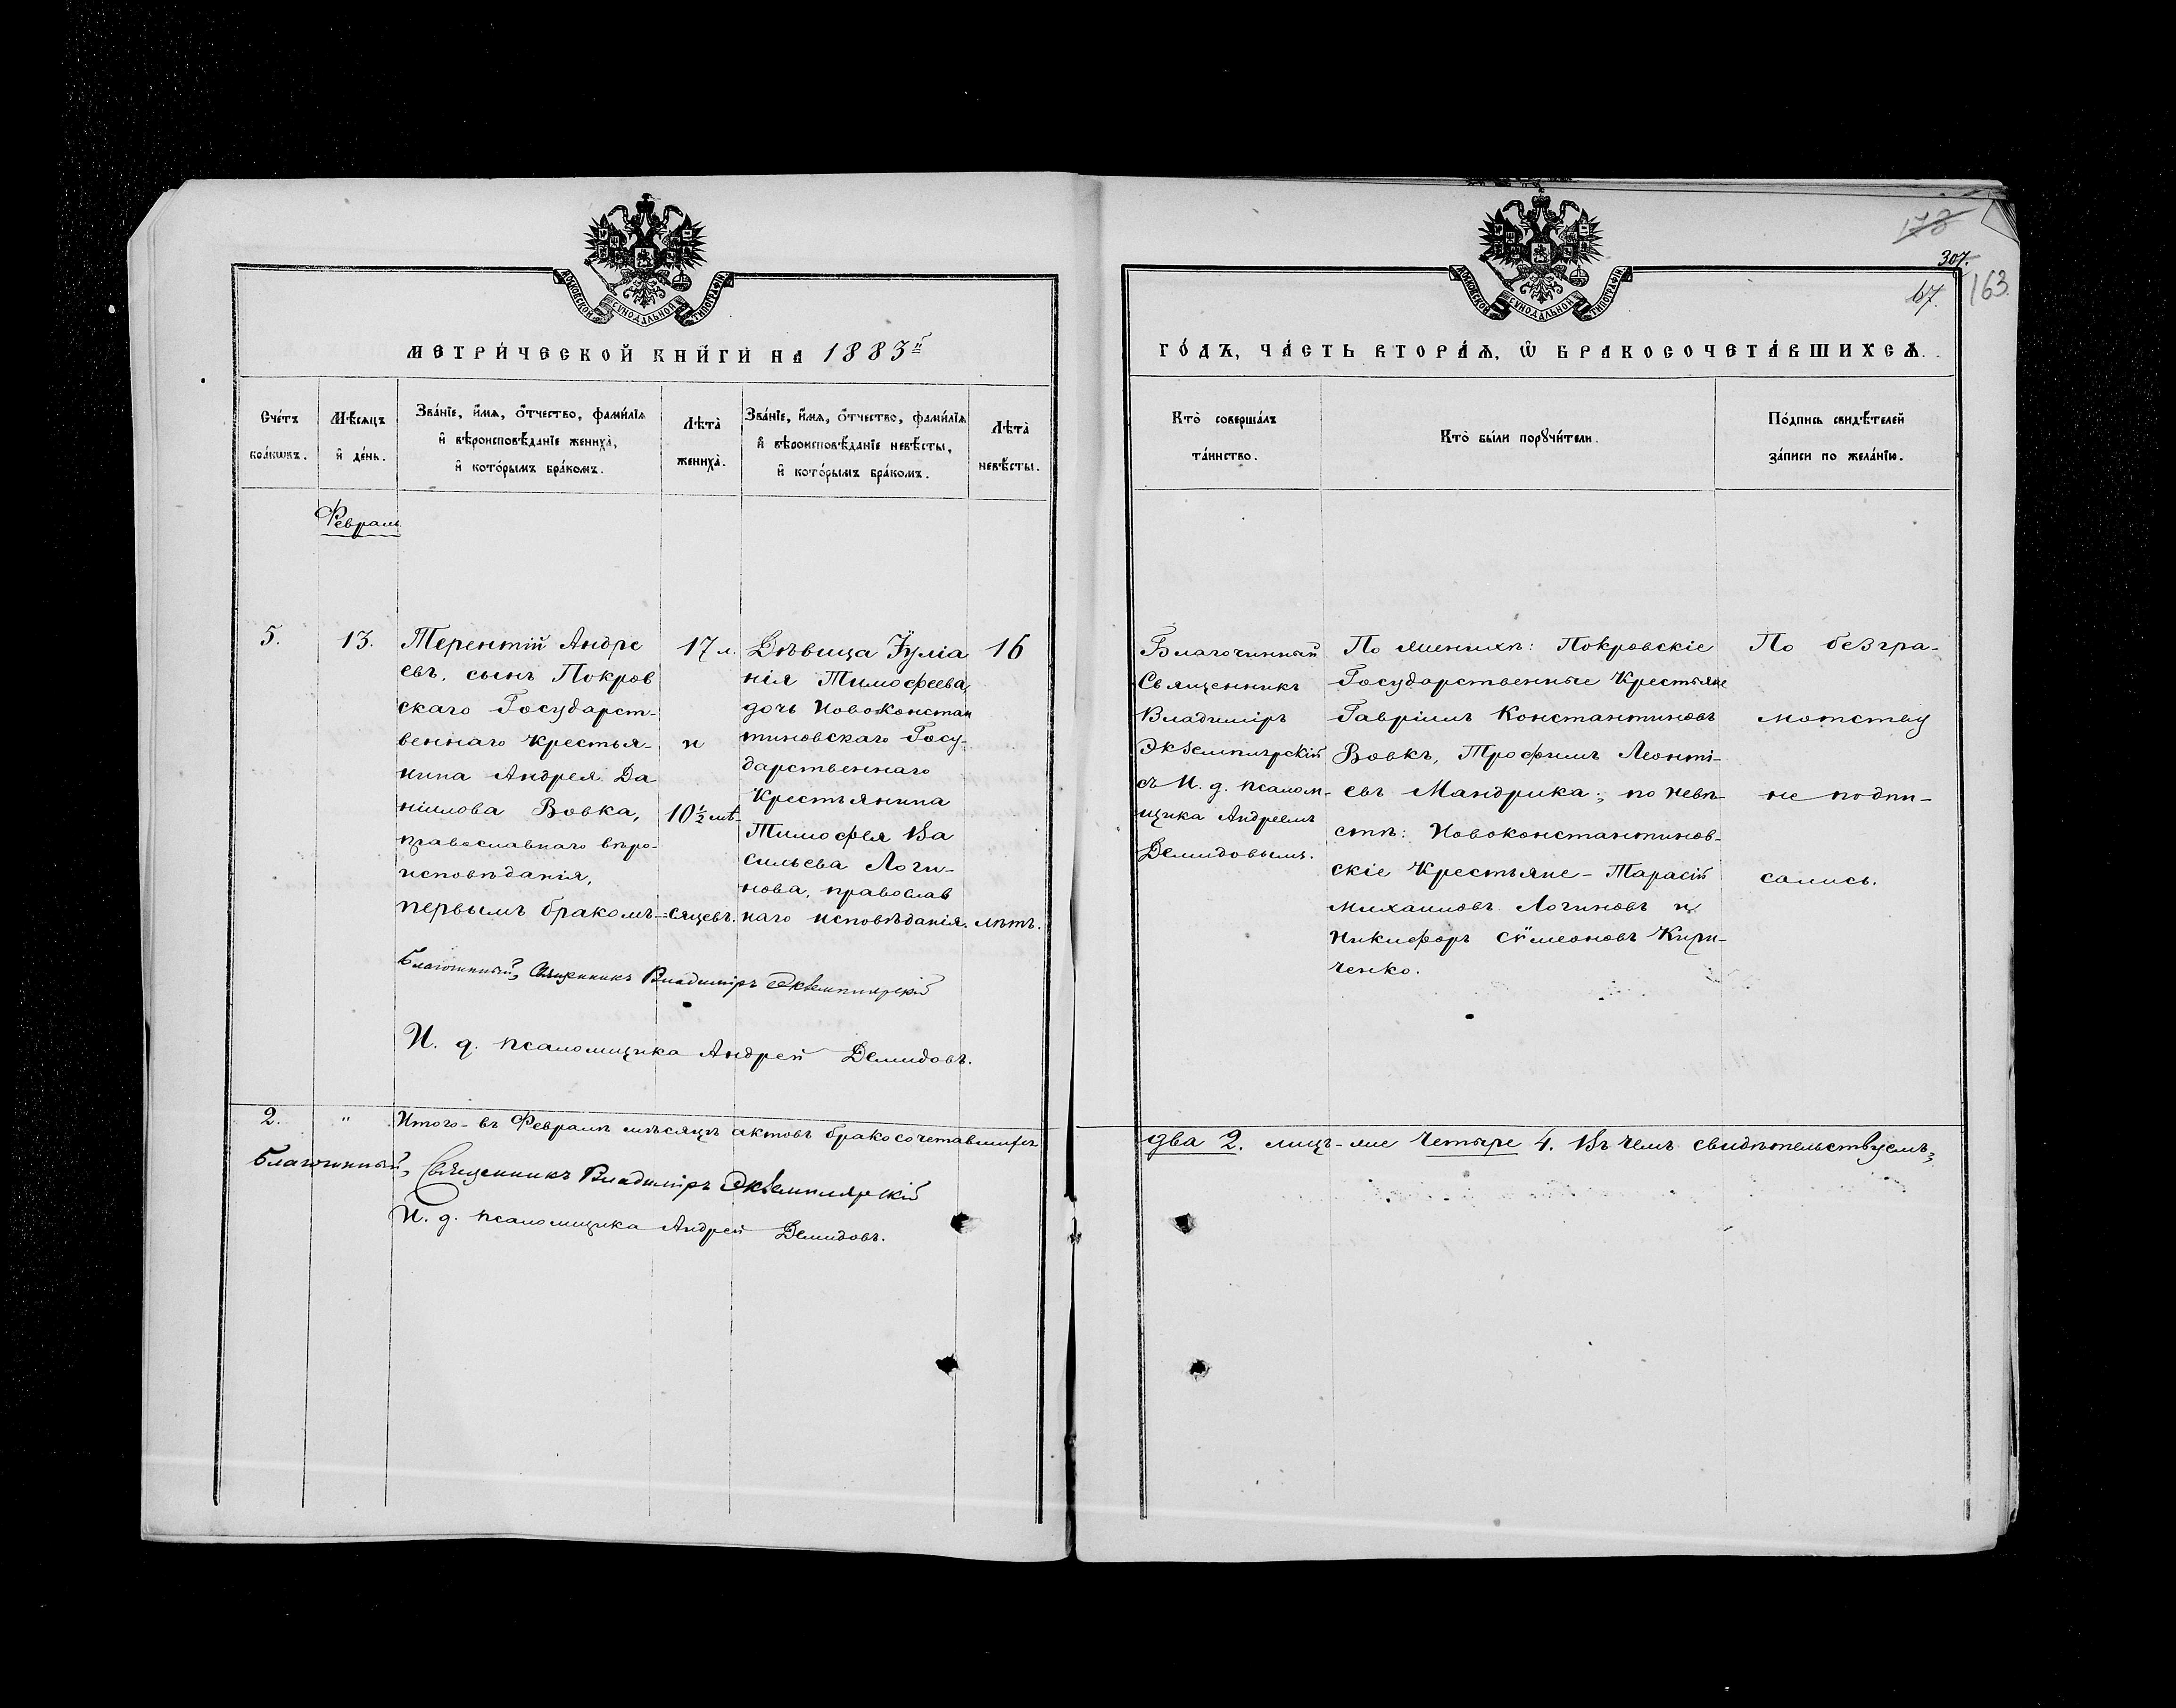 МОСКОВСКОЙ СѴНОДАЛЬНОЙ ТИПОГРАФІИ
МЕТРИ́ЧЕСКОЙ КНИ́ГИ НА 1883й
Сче́тъ бра́кѡвъ.
Мѣ́сяцъ и҆ де́нь.
Зва́нїе, и҆́мѧ, ѻ҆́тчество, фами́лїѧ
и҆ вѣроисповѣ́данїе жениха̀,
и҆ кото́рымъ бра́комъ.
Лѣта̀
жениха̀.
Зва́нїе, и҆́мѧ, ѻ҆́тчество, фами́лїѧ
и҆ вѣроисповѣ́данїе невѣ́сты,
и҆ кото́рымъ бра́комъ.
Лѣта̀
невѣ́сты.
Февраль
5.
13.
Терентій Андре
евъ, сынъ Покров
скаго Государст-
веннаго крестья-
нина Андрея Да
ніилова Вовка,
православнаго вѣро-
исповѣданія,
первымъ бракомъ
17 л.
и
10½ мѣ-
=сяцевъ.
Дѣвица Іуліа
нія Тимофеева,
дочь Новоконстан
тиновскаго Госу-
дарственнаго
Крестьянина
Тимофея Ва
сильева Логи-
нова, православ
наго исповѣданія.
16
лѣтъ.
Благочинный, Священникъ Владиміръ Экземплярскій
И. д. псаломщика Андрей Демидовъ.
2. " Итого - въ Февралѣ мѣсяцѣ актовъ бракосочетавшихъ
Благочинный, Священникъ Владиміръ Экземплярскій
И. д. псаломщика Андрей Демидовъ.
МОСКОВСКОЙ СѴНОДАЛЬНОЙ ТИПОГРАФІИ
178
307.
67.
163.
ГО́ДЪ, ЧА́СТЬ ВТОРА́Ѧ, Ѡ҆ БРАКОСОЧЕТА́ВШИХСѦ.
Кто̀ соверша́лъ
та́инство.
Кто̀ бы́ли порꙋчи́тели.
По́дпись свидѣ́телей
за́писи по жела́нїю.
Благочинный
Священникъ
Владиміръ
Экземплярскій
съ И. д. псалом-
щика Андреемъ
Демидовымъ.
По женихѣ: Покровскіе
Государственные Крестьяне
Гавріилъ Константиновъ
Вовкъ, Трофимъ Леонті-
евъ Мандрика; по невѣ-
стѣ: Новоконстантинов-
скіе Крестьяне - Тарасій
Михаиловъ Логиновъ и
Никифоръ Сѵмеоновъ Кири-
ченко.
По безгра-
мотству
не подпи-
сались.
два 2. лицъ-же четыре 4. Въ чемъ свидѣтельствуемъ;